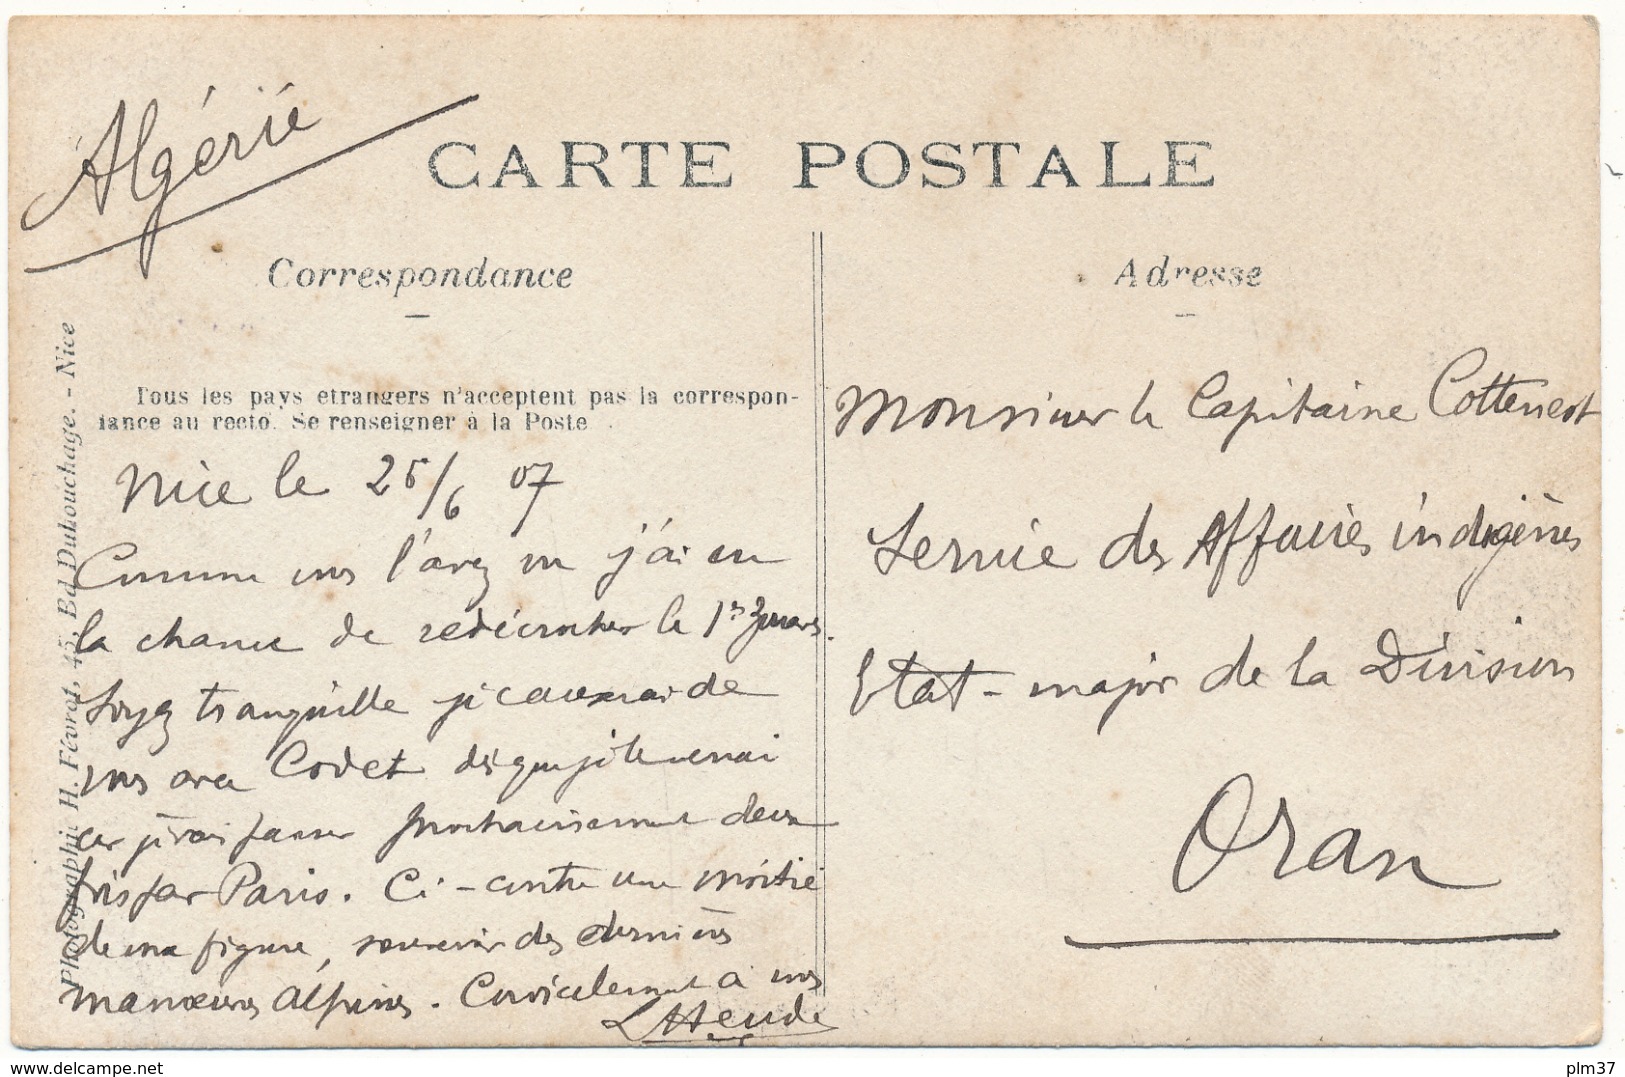 Algérie
CARTE POSTALE
Correspondance
Adresse
Tous les pays etrangers n'acceptent pas la correspon-
dance au recto. Se renseigner à la Poste
Photographie H. Févrot, 45, Bd Dubouchage. - Nice
Nice le 25/6 07
Comme vous l'avez vu j'ai eu
la chance de redécrocher le 1er
Soyez tranquille je causerai de
vous avec Codet dès que je le verrai
car je vais passer prochainement deux
fois par Paris. Ci-contre une moitié
de ma figure, souvenir des dernières
manoeuvres Alpines. Cordialement à vous
Monsieur le Capitaine Cottenest
Service des Affaires indigènes
Etat-major de la Division
Oran
www.delcampe.net
plm37